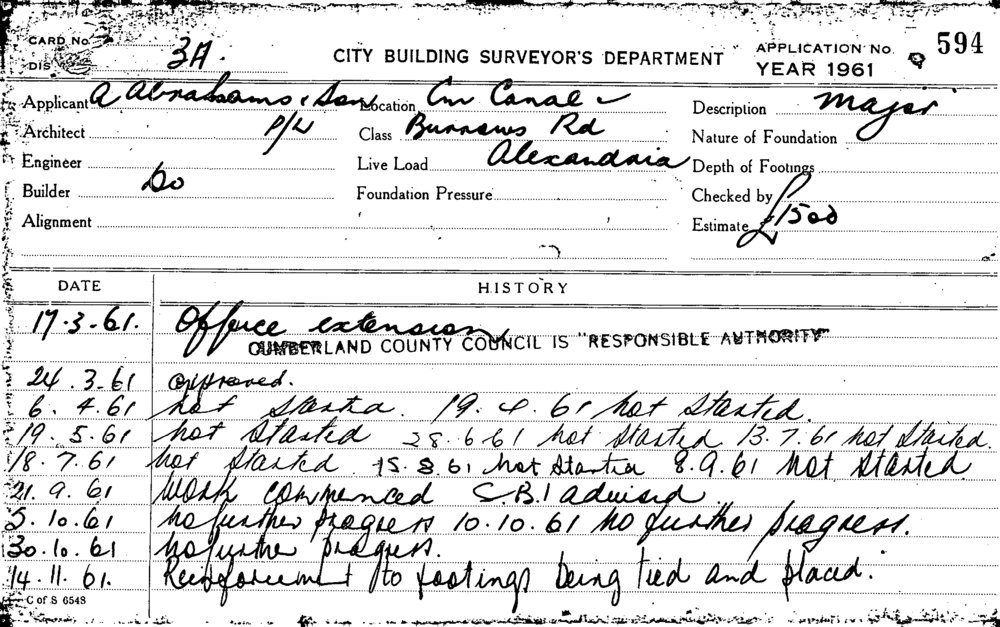 CARD No. 3A. CITY BUILDING SURVEYOR'S DEPARTMENT APPLICATION No. 594
DIS YEAR 1961
Applicant A Abrahams & Son Location Cnr Canal & Description Major
P/L
Architect Class Burrows Rd Nature of Foundation
Engineer Live Load Alexandria Depth of Footings
Builder Do Foundation Pressure Checked by
Alignment Estimate £1500
DATE HISTORY
17.3.61. Office extension
CUMBERLAND COUNTY COUNCIL IS "RESPONSIBLE AUTHORITY"
24.3.61 approved.
6.4.61 not started. 19.4.61 not started.
19.5.61 not started 28.6.61 not started 13.7.61 not started.
18.7.61 not started 15.8.61 not started 8.9.61 not started
21.9.61 work commenced C.B.I advised
5.10.61 no further progress 10.10.61 no further progress.
30.10.61 no further progress.
14.11.61. Reinforcement to footings being tied and placed.
C of S 6548